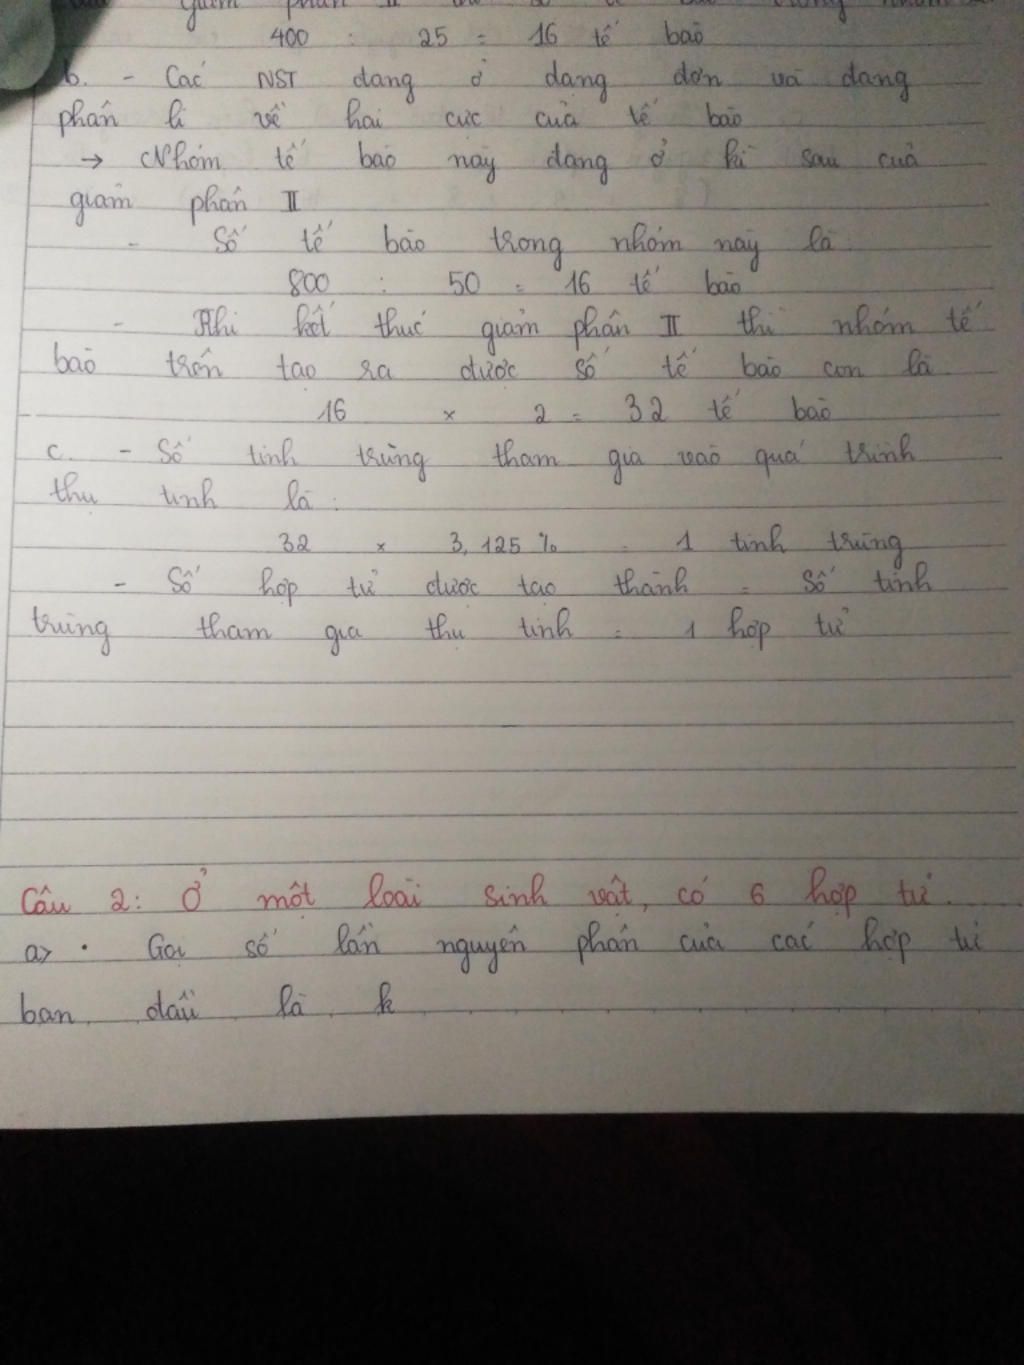 giảm phân II
400 : 25 = 16 tế bào
b. - Các NST đang ở dạng đơn và đang
phân li về hai cực của tế bào
→ Nhóm tế bào này đang ở kì sau của
giảm phân II
- Số tế bào trong nhóm này là:
800 : 50 = 16 tế bào
- Khi kết thúc giảm phân II thì nhóm tế
bào trên tạo ra được số tế bào con là
16 × 2 = 32 tế bào
c. - Số tinh trùng tham gia vào quá trình
thụ tinh là:
32 × 3,125% = 1 tinh trùng
- Số hợp tử được tạo thành = Số tinh
trùng tham gia thụ tinh = 1 hợp tử
Câu 2: Ở một loài sinh vật, có 6 hợp tử.
a> . Gọi số lần nguyên phân của các hợp tử
ban đầu là k